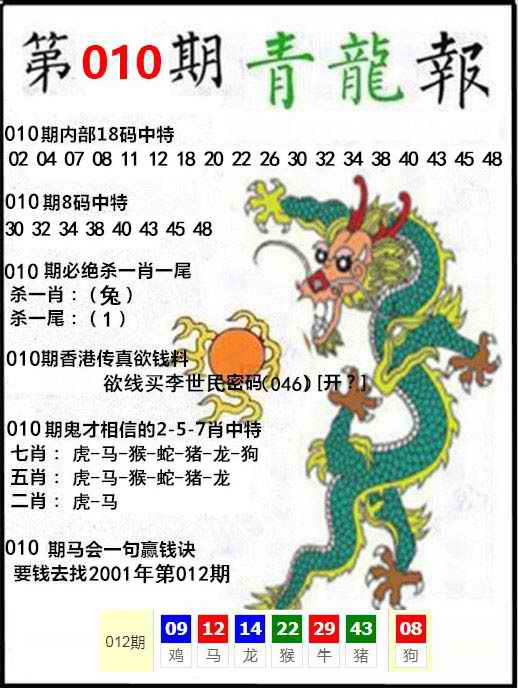 第010期青龍報
010期内部18码中特
02 04 07 08 11 12 18 20 22 26 30 32 34 38 40 43 45 48
010期8码中特
30 32 34 38 40 43 45 48
010 期必绝杀一肖一尾
杀一肖：（兔）
杀一尾：（1）
010期香港传真欲钱料
欲线买李世民密码(046) [开？]
010期鬼才相信的2-5-7肖中特
七肖： 虎-马-猴-蛇-猪-龙-狗
五肖： 虎-马-猴-蛇-猪-龙
二肖： 虎-马
010 期马会一句赢钱诀
要钱去找2001年第012期
012期 09 12 14 22 29 43 08
鸡 马 龙 猴 牛 猪 狗